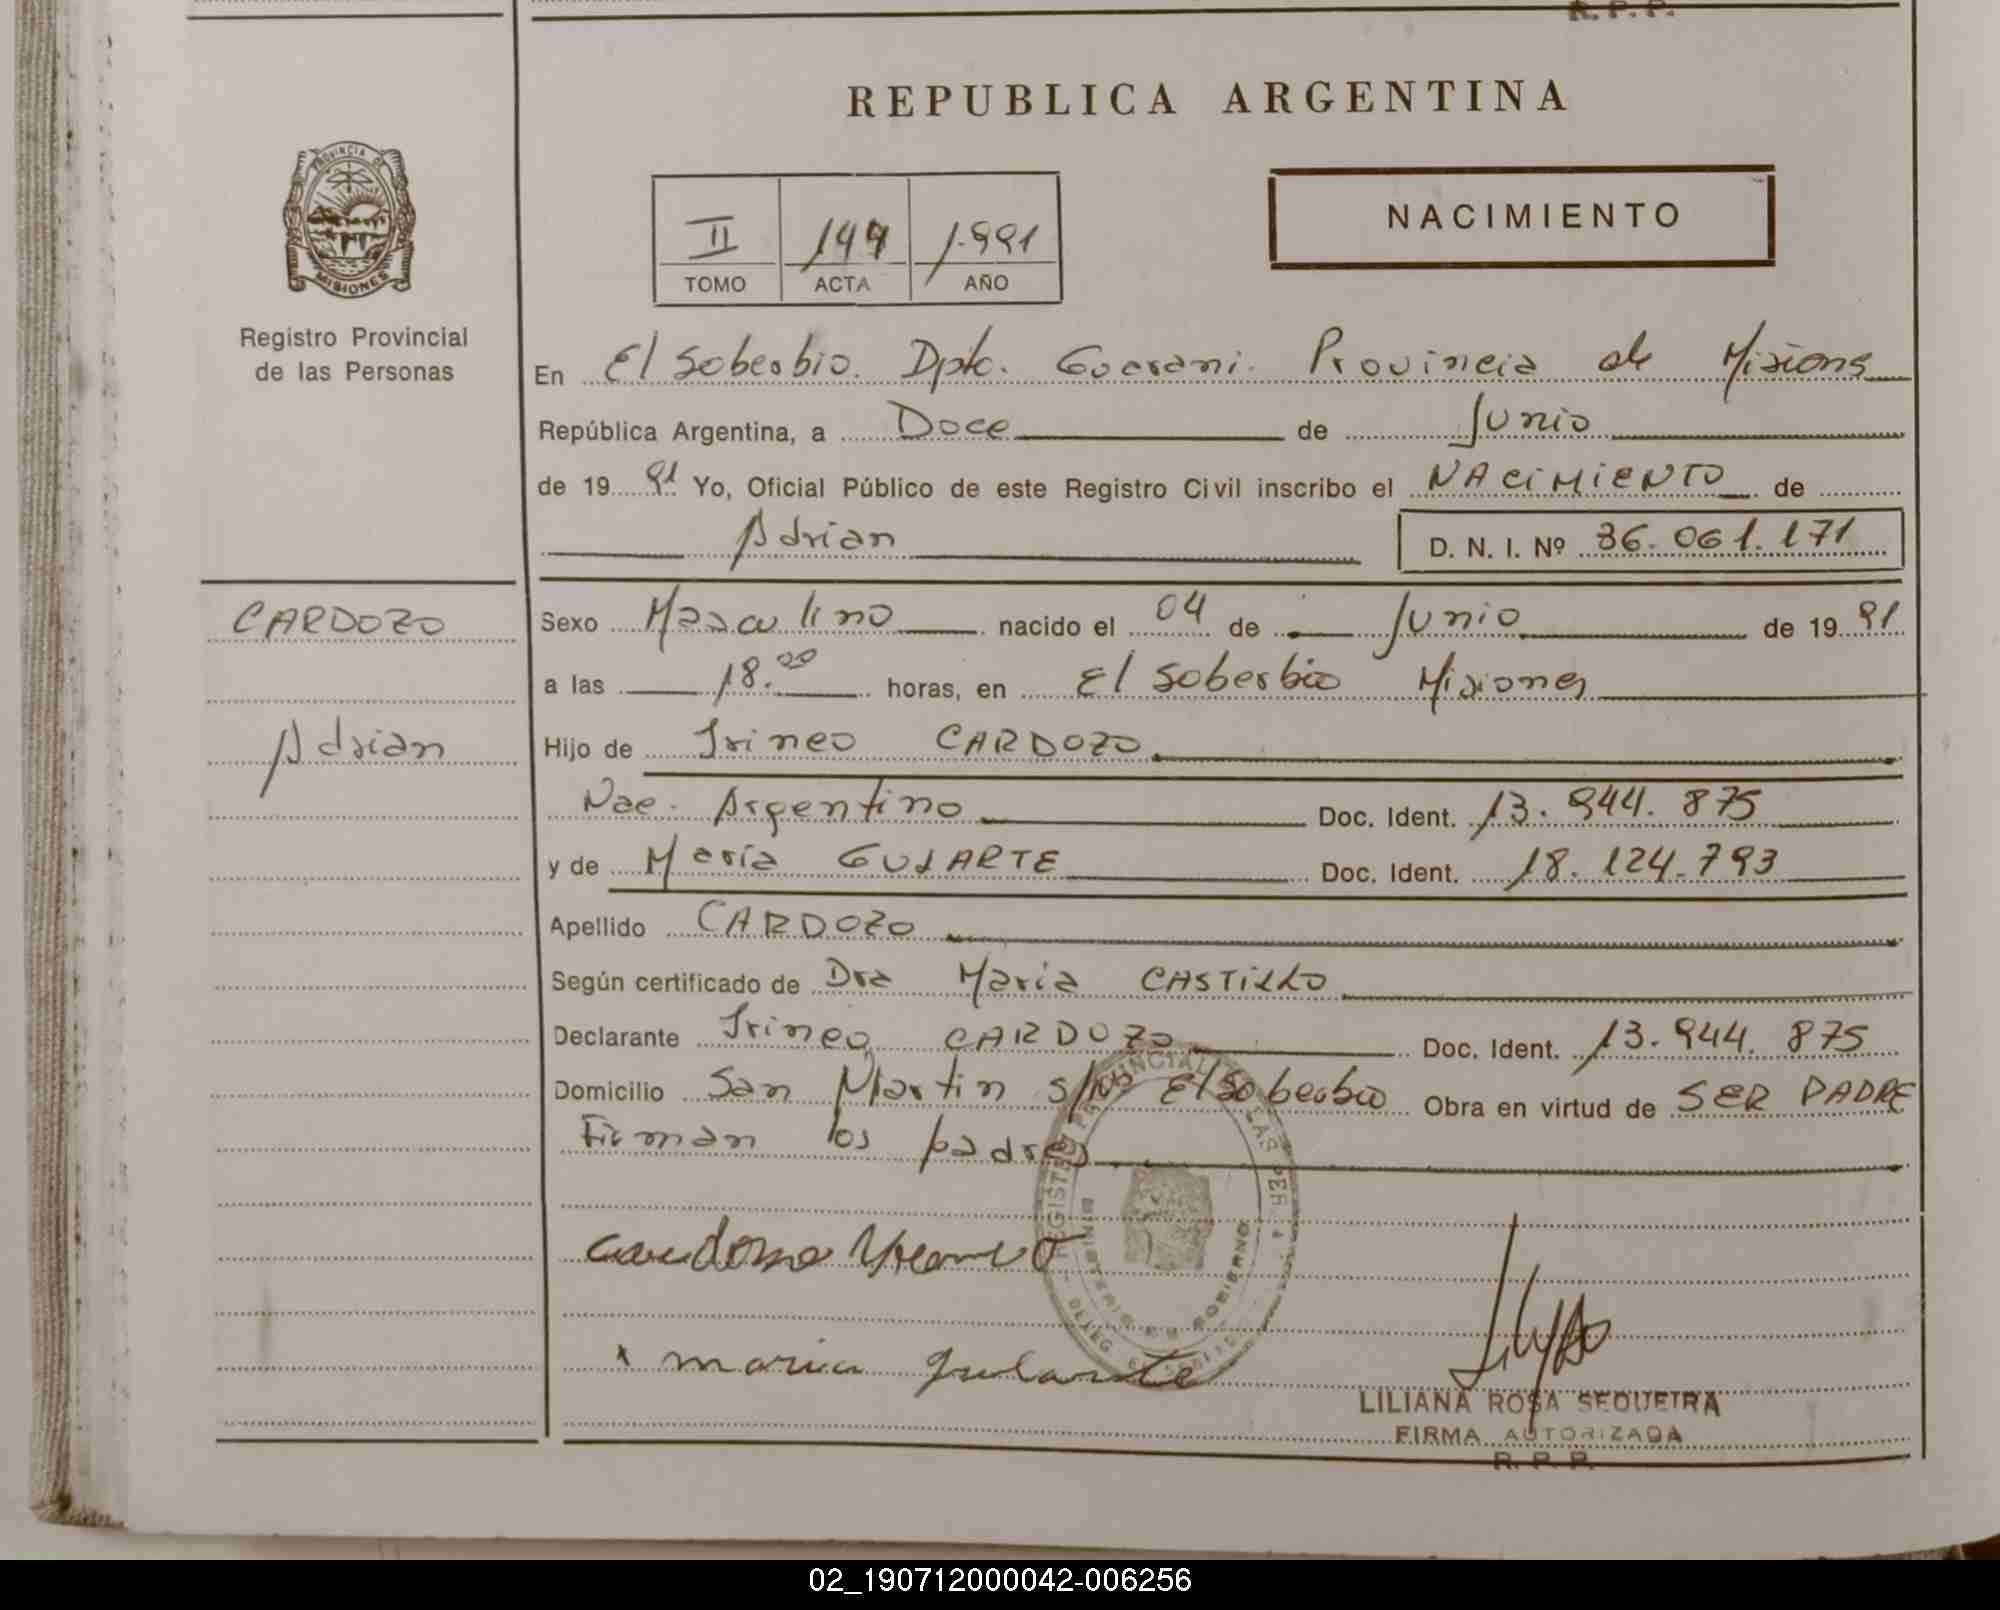 R. P. P.
REPUBLICA ARGENTINA
PROVINCIA DE
MISIONES
Registro Provincial
de las Personas
II 149 1.991
TOMO ACTA AÑO
NACIMIENTO
En El Soberbio. Dpto. Guarani. Provincia de Misiones
República Argentina, a Doce de Junio
de 19 91 Yo, Oficial Público de este Registro Civil inscribo el NACIMIENTO de
Adrian D. N. I. Nº 36.061.171
CARDOZO
Adrian
Sexo Masculino nacido el 04 de Junio de 19 91
a las 18.00 horas, en El Soberbio Misiones
Hijo de Irineo CARDOZO
Nac. Argentino Doc. Ident. 13.944.875
y de Maria GULARTE Doc. Ident. 18.124.793
Apellido CARDOZO
Según certificado de Dra Maria CASTILLO
Declarante Irineo CARDOZO Doc. Ident. 13.944.875
Domicilio San Martin s/Nº El Soberbio Obra en virtud de SER PADRE
Firman los padres
REGISTRO PROVINCIAL DE LAS PER
MINISTERIO DE GOBIERNO
Cardozo Yreneo
x maria gularte
LILIANA ROSA SEQUEIRA
FIRMA AUTORIZADA
R. P. P.
02_190712000042-006256